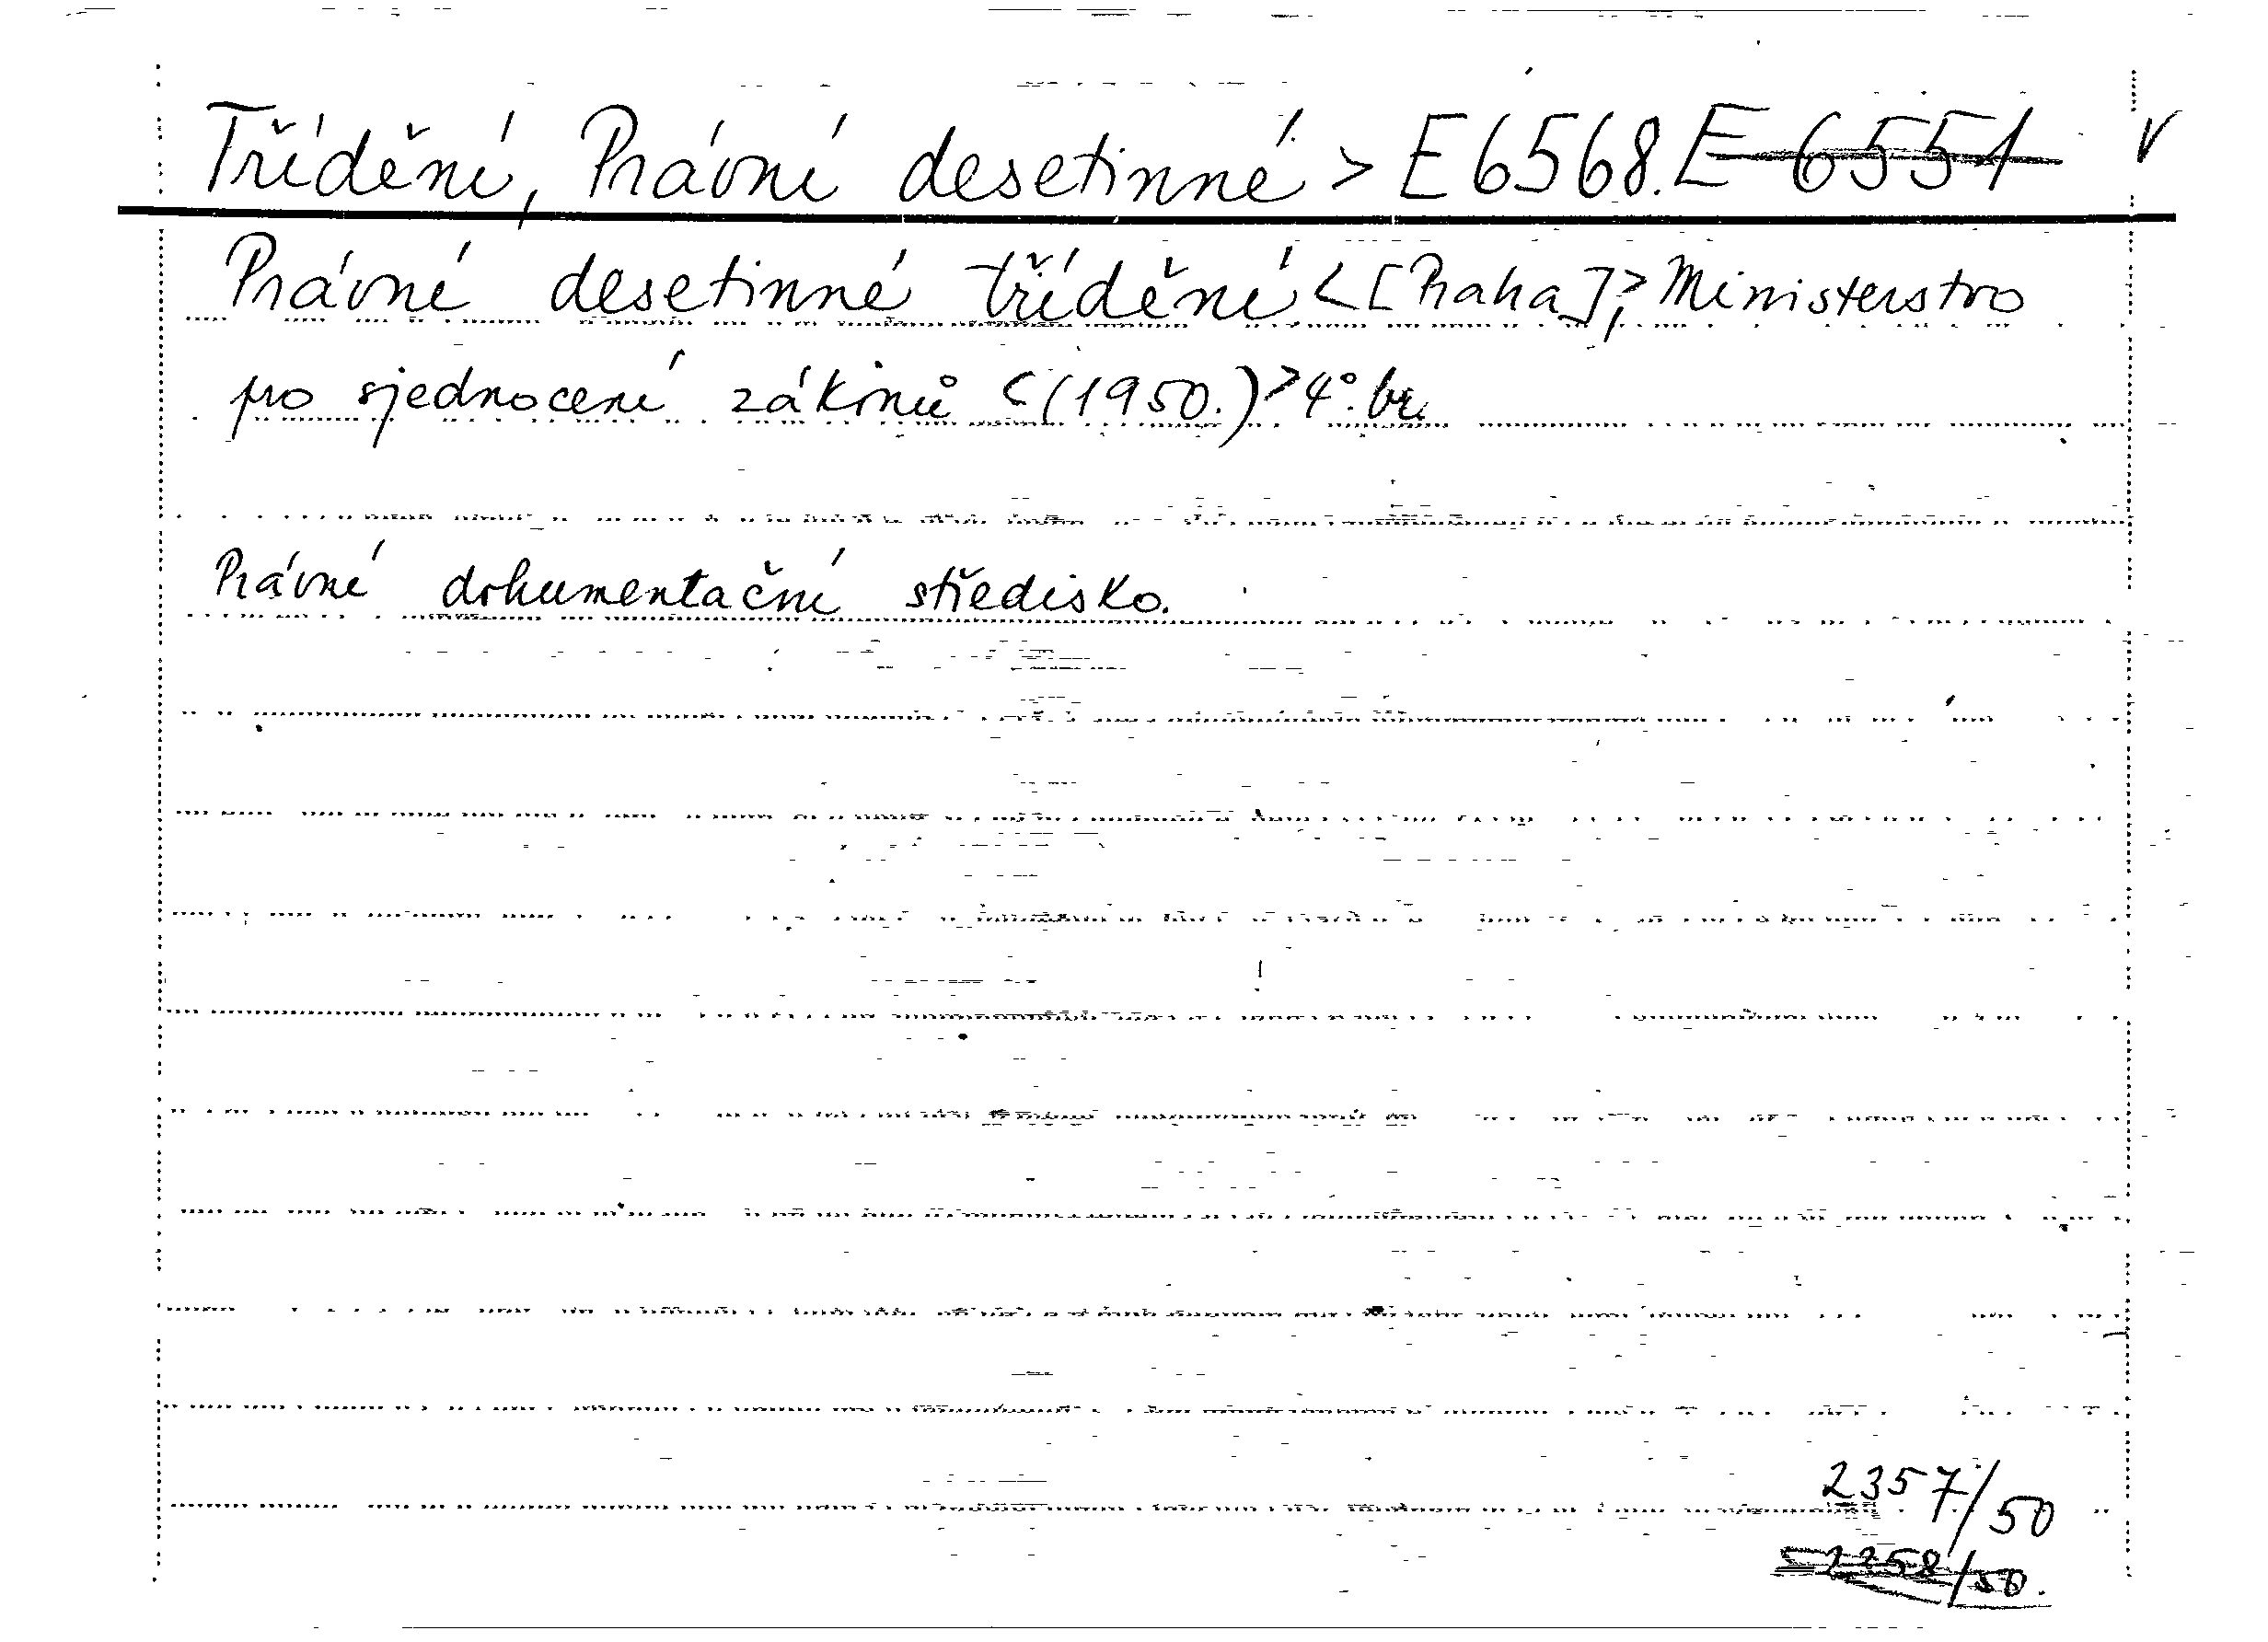 Třídění, Právní desetinné > E6568. E 6551 V
Právné desetinné třídění < [Praha], > Ministerstvo
pro sjednocení zákonů < (1950.) > 4°. br.
Právné dokumentační středisko.
2357/50
2358/50.